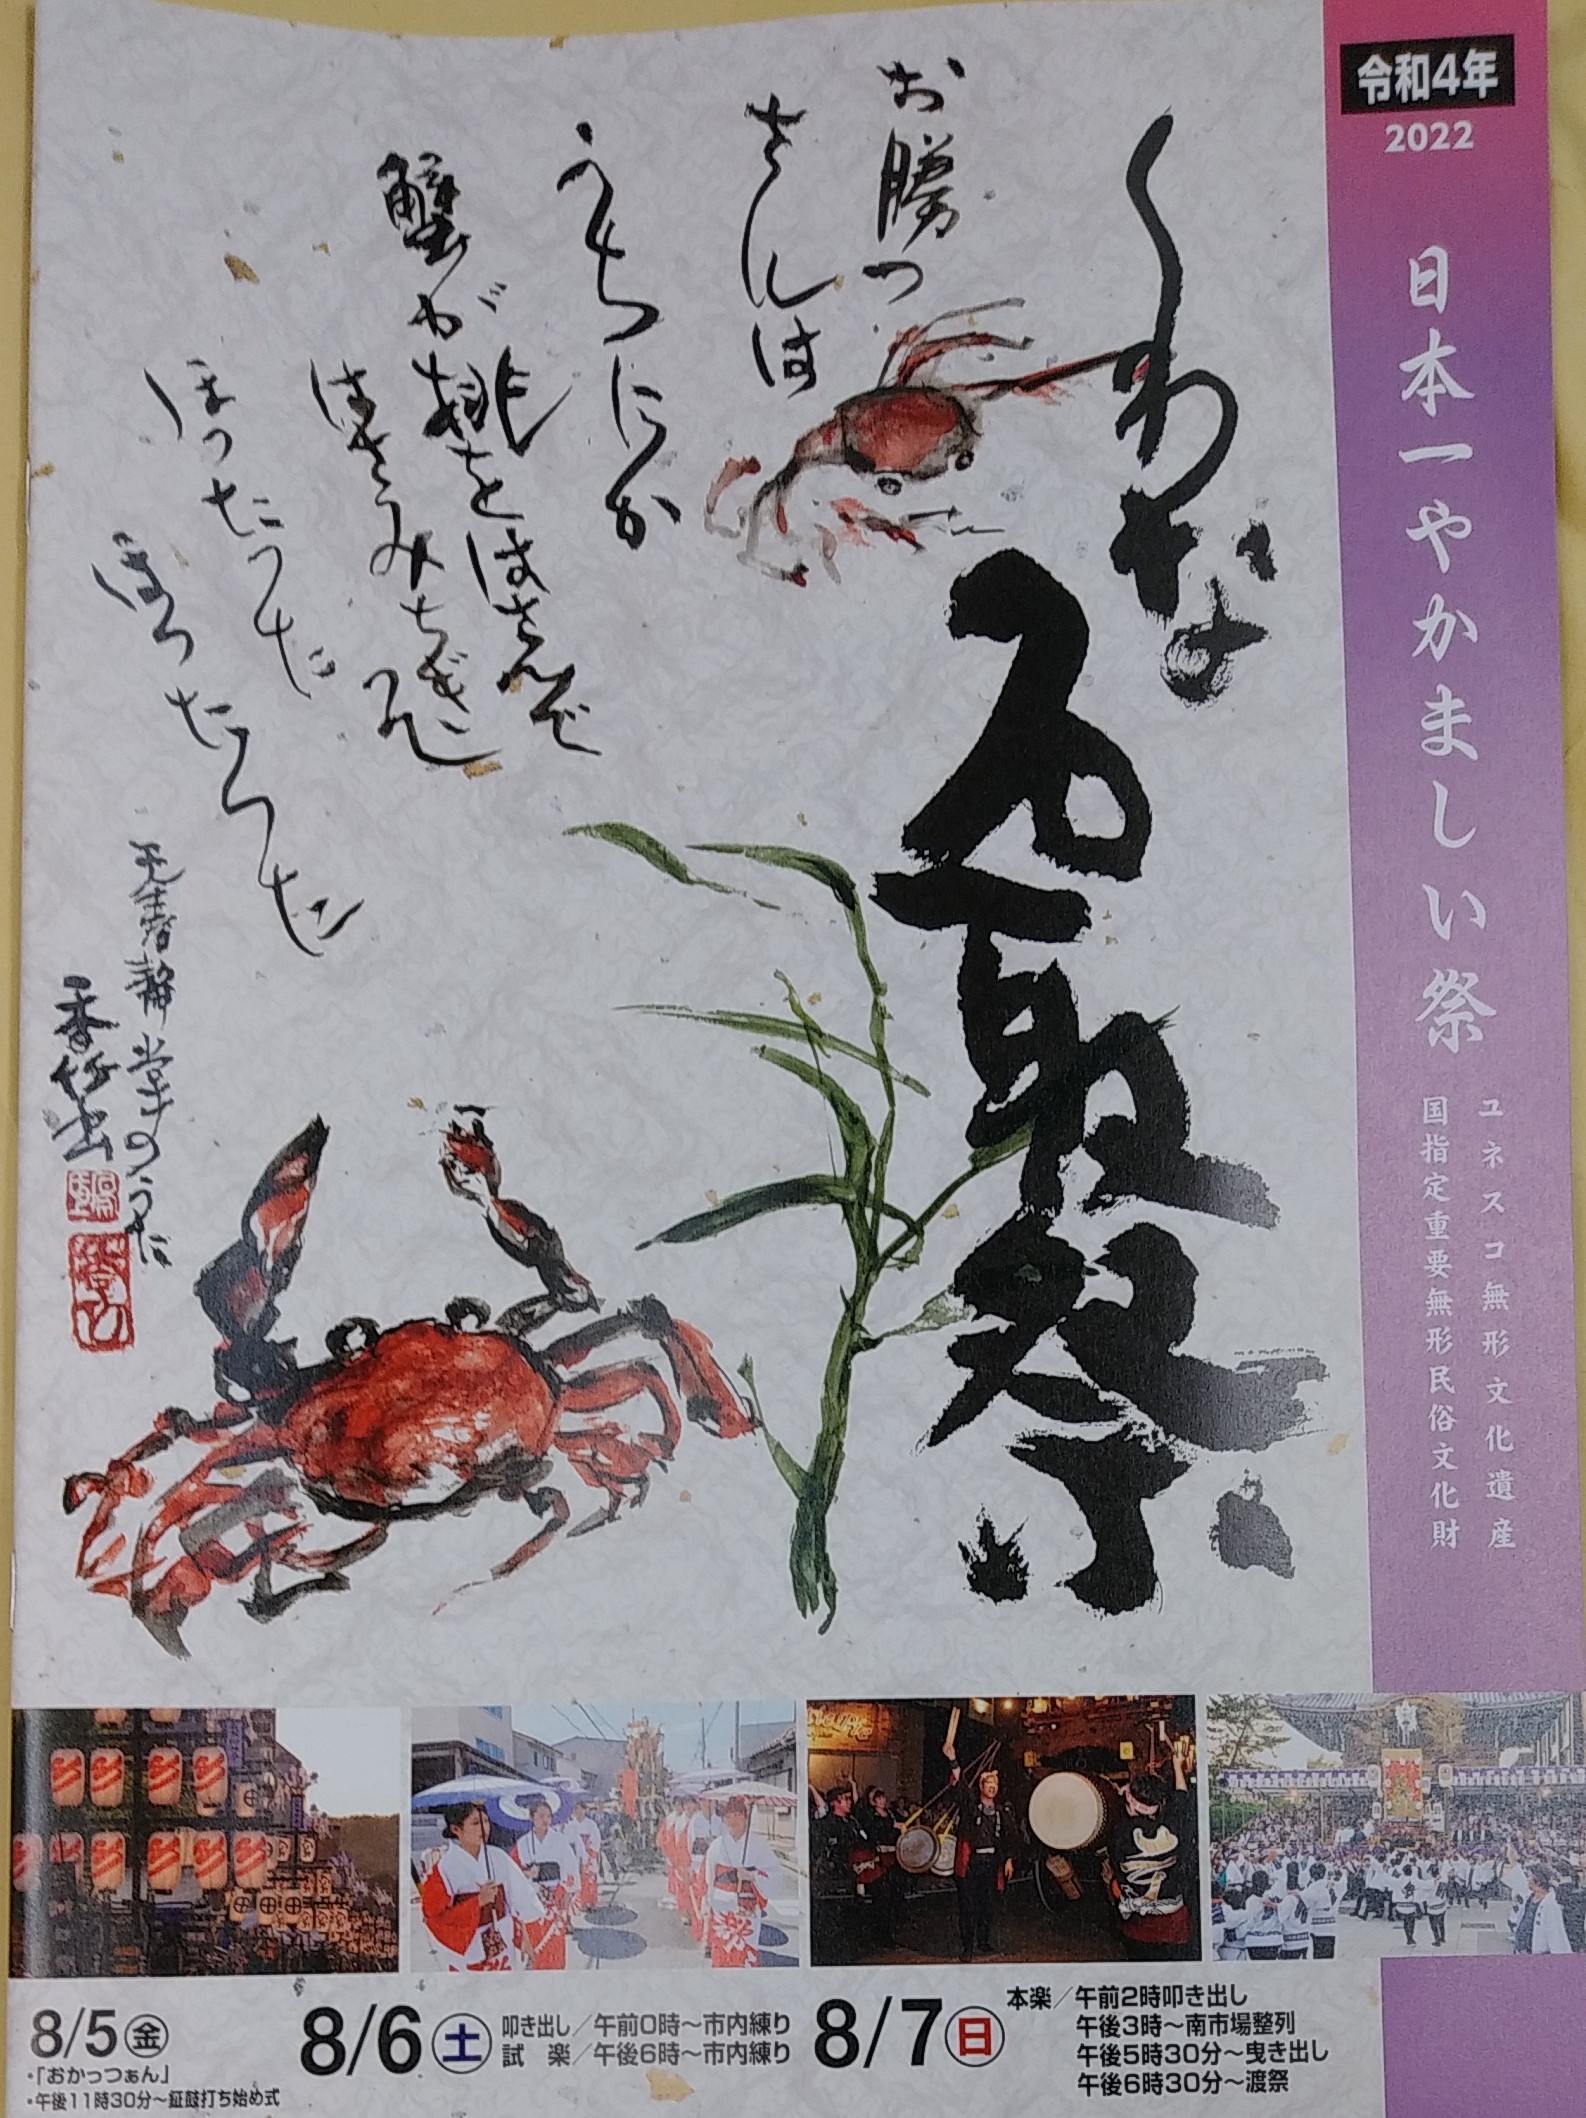 令和4年
2022
日本一やかましい祭
ユネスコ無形文化遺産
国指定重要無形民俗文化財
くわな
石取祭
お勝つ
さんは
うちにか
蟹が桃をはさんで
はさみちぎる
ほったった
ほったった
香竹书
8/5㊎
・「おかっつぁん」
・午後11時30分～鉦鼓打ち始め式
8/6㊏
叩き出し／午前0時～市内練り
試　楽／午後6時～市内練り
8/7㊐
本楽／午前2時叩き出し
午後3時～南市場整列
午後5時30分～曳き出し
午後6時30分～渡祭